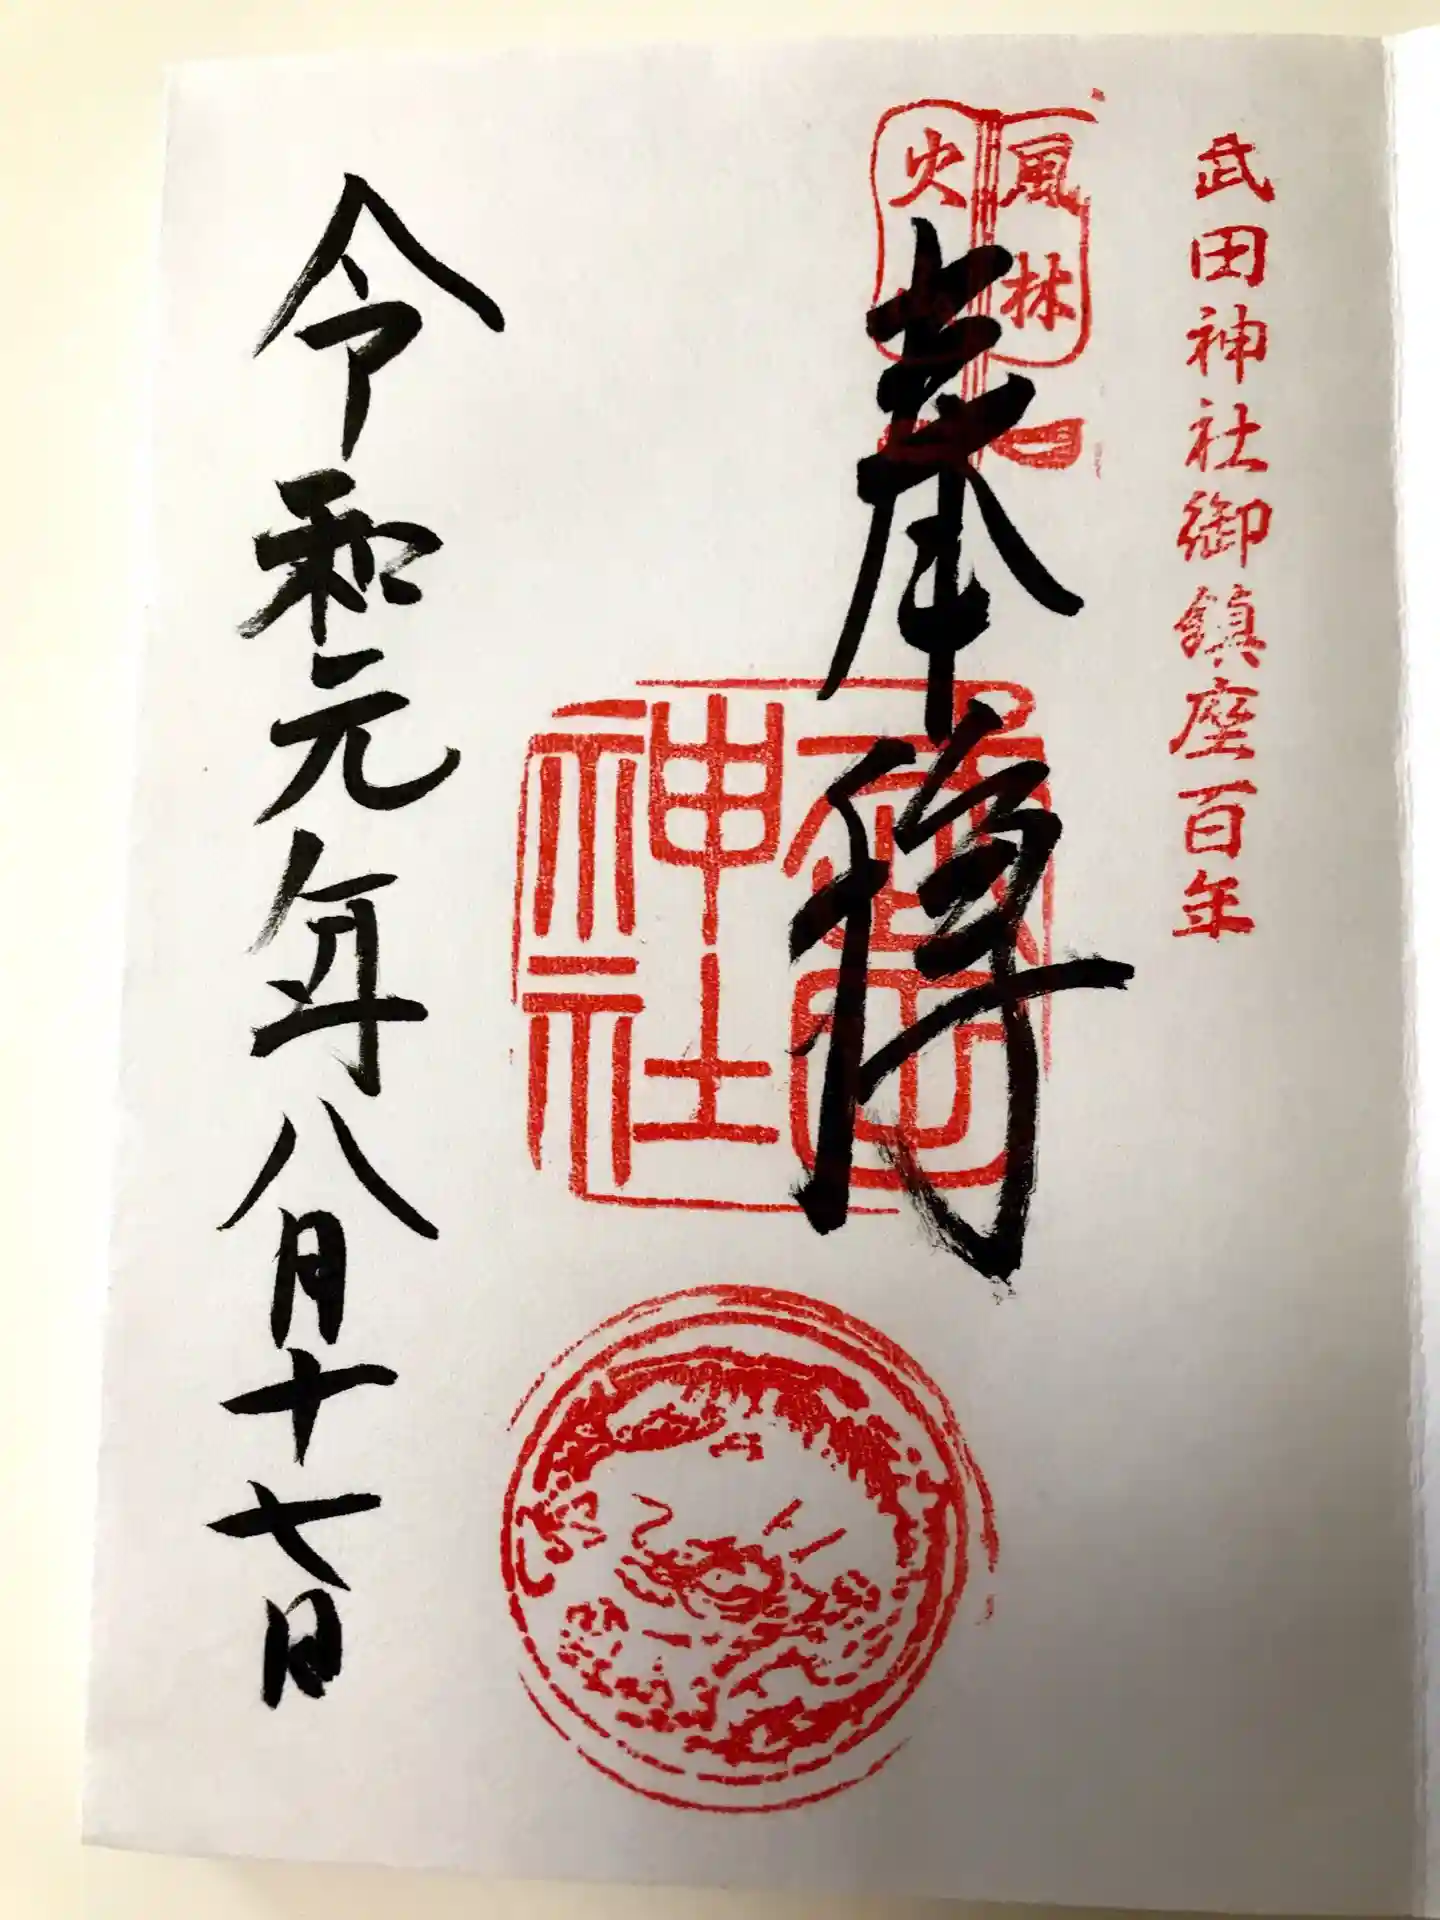 武田神社御鎮座百年
風林
火山
奉拝
武田
神社
令和元年八月十七日